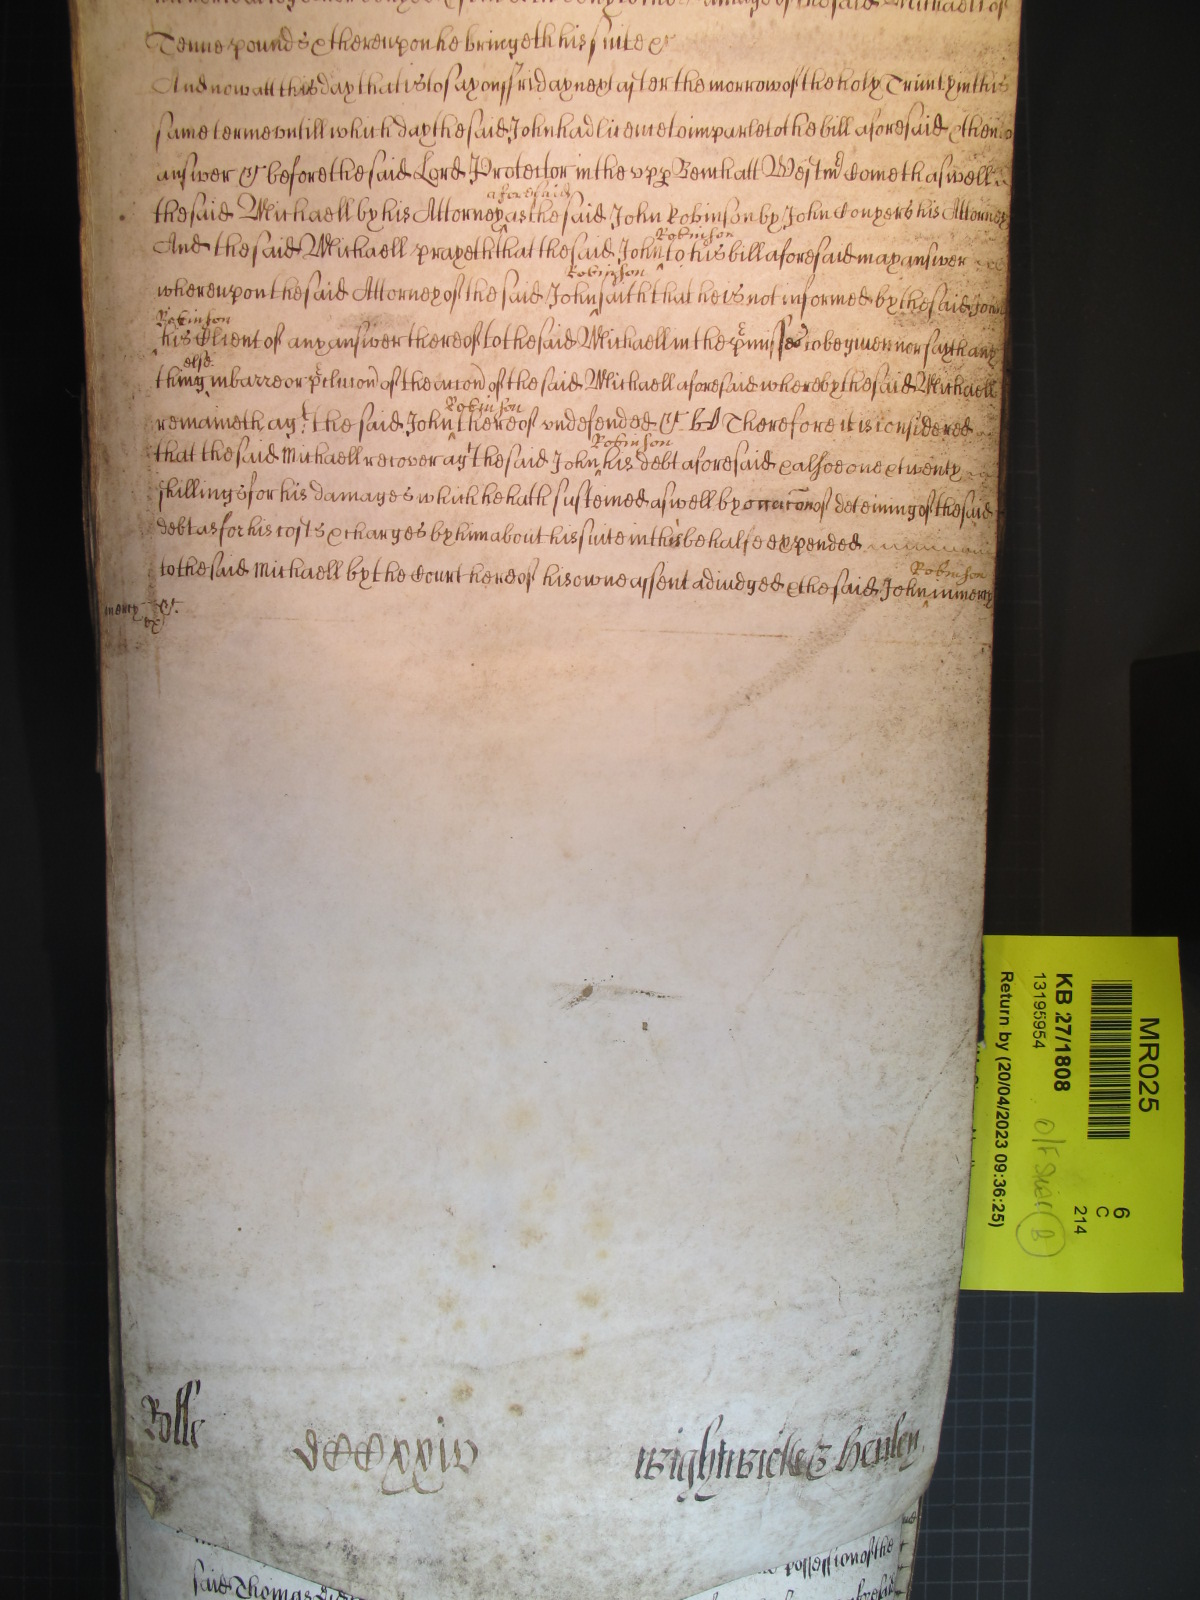 of the said Michaell of
Tenne pounds & thereupon he bringeth his suite &c
And now att this day that is to say on ffriday next after the morrow of the holy Trinity in this
same terme untill which day the said John had licence to imparle to the bill aforesaid & then to
answer &c before the said Lord Protector in the upp Bench att Westm cometh aswell
aforesaid
the said Michaell by his Attorney ^ as the said John Robinson by John Coupers his Attorney
Robinson
And the said Michaell prayeth that the said John ^ to his bill aforesaid may answer
Robinson
whereupon the said Attorney of the said John ^ saith that he is not informed by the said John
Robinson
^ his Client of any answer thereof to the said Michaell in the pmisses to be given nor sayth any
else
thing ^ in barre or pclusion of the accon of the said Michaell aforesaid whereby the said Michaell
Robinson
remaineth agt the said John ^ thereof undefended &c Therefore it is considered
Robinson
that the said Michaell recover agt the said John ^ his debt aforesaid & alsoe one & twenty
shillings for his damages which he hath susteined aswell by occacon of deteining of the said
debt as for his costs & charges by him about his suite in this behalfe expended
Robinson
to the said Michaell by the Court here of his owne assent adiudged & the said John ^ in mercy
mercy &c.
Rolle
DCCCxxiiij
Wightwicke & Henley
possession of the
said Thomas did
MR025
6
C
214
KB 27/1808
13195954
Return by (20/04/2023 09:36:25)
B